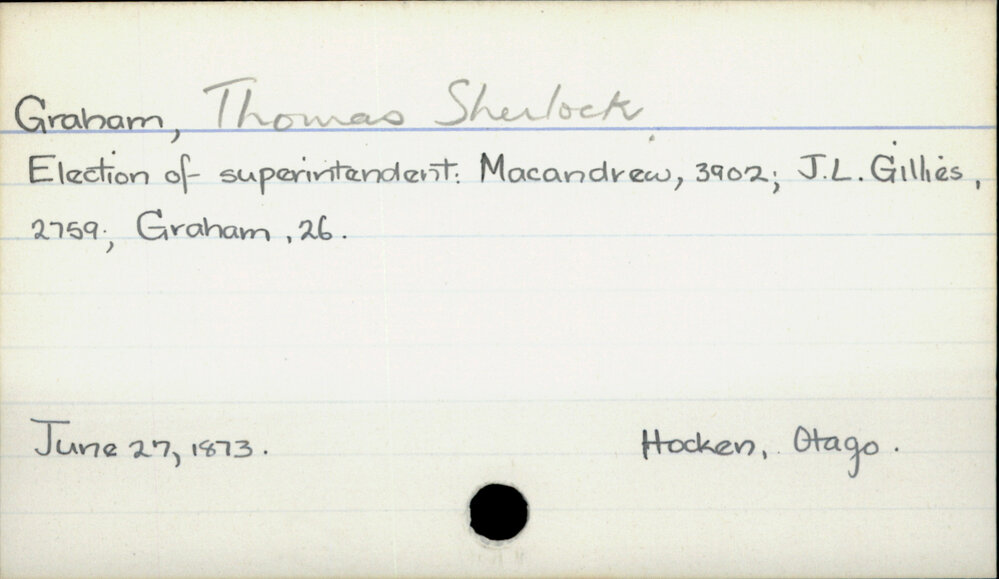 Graham, Thomas Sherlock
Election of superintendent: Macandrew, 3902; J.L. Gillies,
2759; Graham, 26.
June 27, 1873. Hocken, Otago.